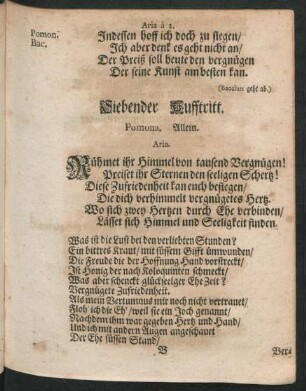 Aria à 2.
Pomon. Indessen hoff ich doch zu siegen/
Bac. Ich aber denk es geht nicht an/
Der Preiß soll heute den vergnügen
Der seine Kunst am besten kan.
(Bacchus geht ab.)
Siebender Aufftritt.
Pomona, Allein.
Aria.
Rühmet ihr Himmel von tausend Vergnügen!
Preiset ihr Sternen den seeligen Schertz!
Diese Zufriedenheit kan euch besiegen/
Die dich verhimmelt vergnügetes Hertz.
Wo sich zwey Hertzen durch Ehe verbinden/
Lässet sich Himmel und Seeligkeit finden.
Was ist die Lust bei den verliebten Stunden?
Ein bittres Kraut/ mit süssem Gifft umwunden/
Die Freude die der Hoffnung Hand vorstreckt/
Ist Honig der nach Koloquinten schmeckt/
Was aber schenckt glückseeliger Ehe Zeit?
Vergnügete Zufriedenheit.
Als mein Vertumnus mir noch nicht vertrauet/
Floh ich die Eh'/ weil sie ein Joch genannt/
Nachdem ihm war gegeben Hertz und Hand/
Und ich mit andern Augen angeschauet
Der Ehe süssen Stand/
B Ver=